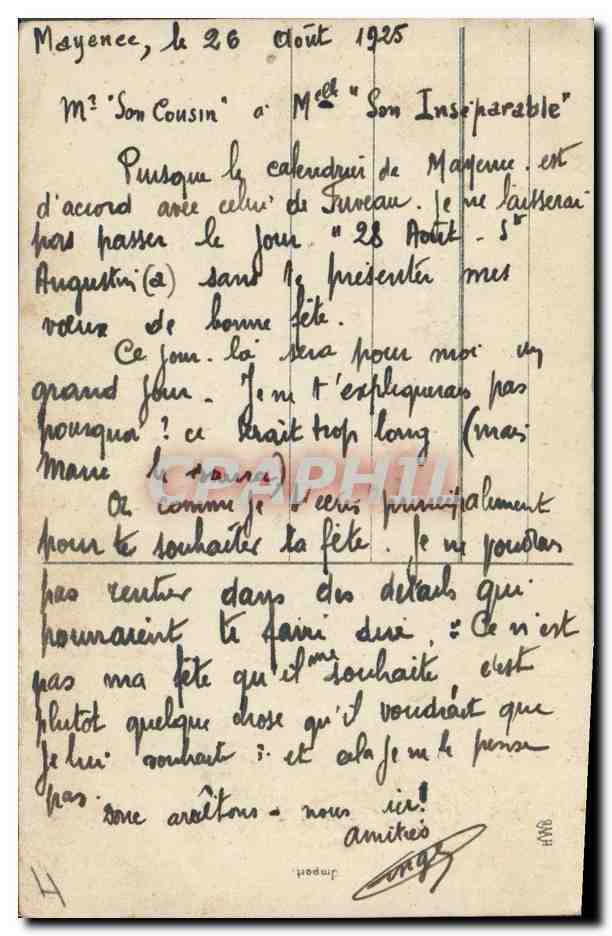 Mayence, le 26 Août 1925
Mr "Son Cousin" à Melle "Son Inséparable"
Puisque le calendrier de Mayence est
d'accord avec celui de Fuveau. je ne laisserai
pas passer le jour "28 Août - St
Augustin(e) sans te présenter mes
vœux de bonne fête.
Ce jour-là sera pour moi un
grand jour. Je ne t'expliquerais pas
pourquoi ? ce serait trop long (mais
Marie le saura)
CPAPHIL
Or comme je t'écris principalement
pour te souhaiter ta fête. Je ne voudrais
pas rentrer dans des détails qui
pourraient te faire dire : "Ce n'est
pas ma fête qu'il me souhaite, c'est
plutôt quelque chose qu'il voudrait que
je lui souhaite". et cela je ne le pense
pas.
Donc arrêtons-nous ici!
Amitiés
Ange
Import.
4